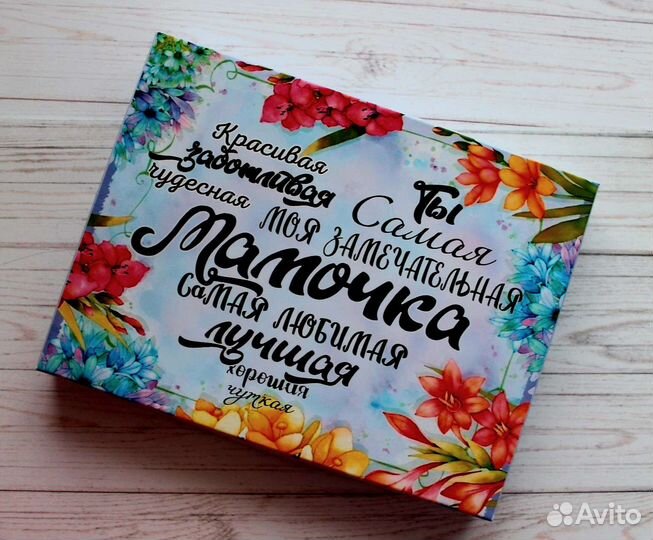 Красивая
заботливая
чудесная
Ты
Самая
МОЯ ЗАМЕЧАТЕЛЬНАЯ
Мамочка
САМАЯ ЛЮБИМАЯ
лучшая
хорошия
чуткая
Avito